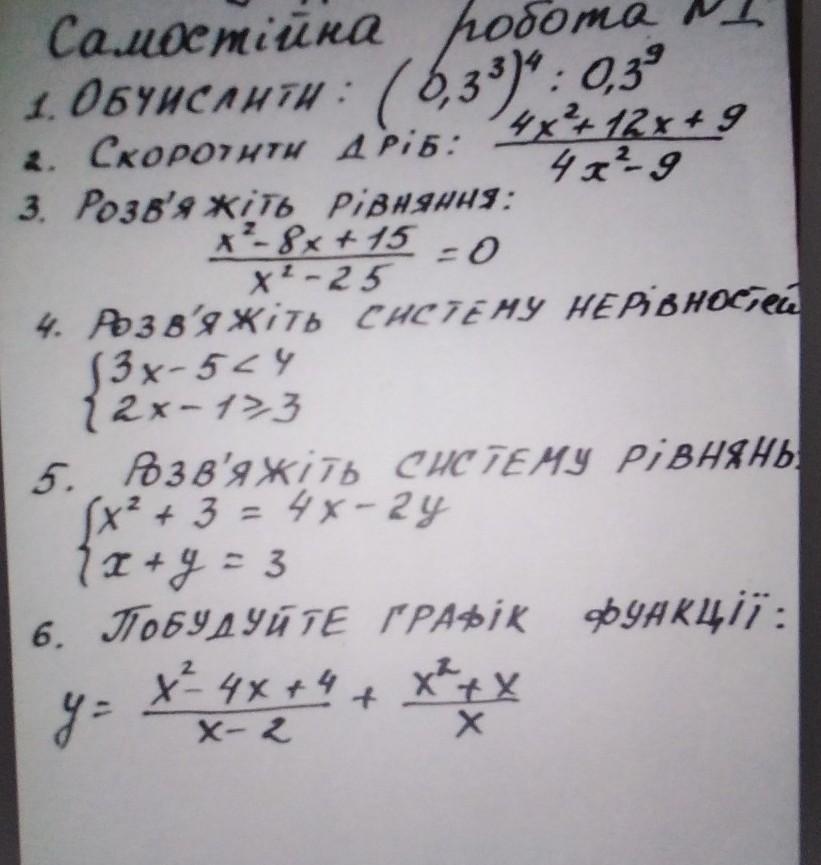 Самостійна робота №1
1. Обчислити: (0,3³)⁴ : 0,3⁹
2. Скоротити дріб: (4x² + 12x + 9)/(4x² - 9)
3. Розв'яжіть рівняння:
(x² - 8x + 15)/(x² - 25) = 0
4. Розв'яжіть систему нерівностей
{3x - 5 < 4
{2x - 1 ≥ 3
5. Розв'яжіть систему рівнянь:
{x² + 3 = 4x - 2y
{x + y = 3
6. Побудуйте графік функції:
y = (x² - 4x + 4)/(x - 2) + (x² + x)/x